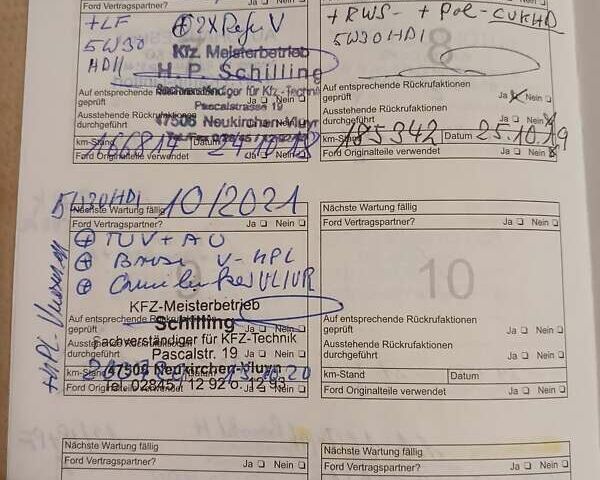 Ford Vertragspartner? Ja Nein
+LF + 2x Refu V
5W30
HDI
Kfz. Meisterbetrieb
H.P. Schilling
Sachverständiger für Kfz.-Technik
Pascalstrasse 19
47506 Neukirchen-Vluyn
Auf entsprechende Rückrufaktionen
geprüft Ja Nein
Ausstehende Rückrufaktionen
durchgeführt Ja Nein
km-Stand 166814 Datum 24.10.18
Ford Originalteile verwendet Ja Nein
+RWS- + Pol-
5W30HDI
8
Auf entsprechende Rückrufaktionen
geprüft Ja Nein
Ausstehende Rückrufaktionen
durchgeführt Ja Nein
km-Stand 185342 Datum 25.10.19
Ford Originalteile verwendet Ja Nein
5W30HDI
Nächste Wartung fällig 10/2021
Ford Vertragspartner? Ja Nein
+ TÜV + AU
+ V-HPL
+ VL/VR
+HPL-
9
KFZ-Meisterbetrieb
Schilling
Fachverständiger für KFZ-Technik
Pascalstr. 19
47506 Neukirchen-Vluyn
Tel. 02845 / 12 92 o. 12 93
Auf entsprechende Rückrufaktionen
geprüft Ja Nein
Ausstehende Rückrufaktionen
durchgeführt Ja Nein
km-Stand Datum
Ford Originalteile verwendet Ja Nein
Nächste Wartung fällig
Ford Vertragspartner? Ja Nein
10
Auf entsprechende Rückrufaktionen
geprüft Ja Nein
Ausstehende Rückrufaktionen
durchgeführt Ja Nein
km-Stand Datum
Ford Originalteile verwendet Ja Nein
Nächste Wartung fällig
Ford Vertragspartner? Ja Nein
Nächste Wartung fällig
Ford Vertragspartner? Ja Nein